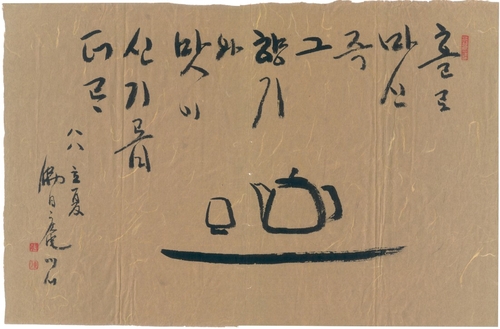 홀로
마신
즉
그
향기
와
맛이
신기롭
더라
八八 立夏
日 庵에서